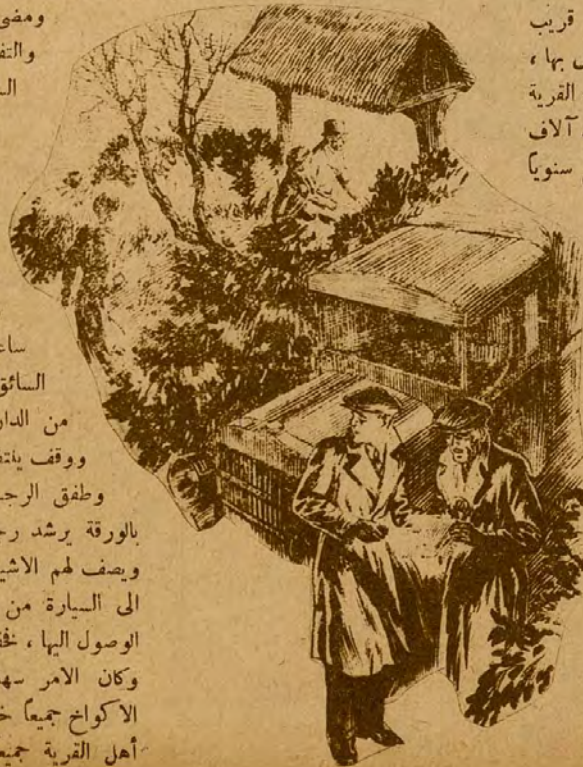 قريب
بها ،
القرية
آلاف
سنوياً
ومضى
والتف
ال
ساع
السائق
من الدار
ووقف ينتظ
وطفق الرج
بالورقة يرشد رج
ويصف لهم الاشي
الى السيارة من
الوصول اليها ، فخ
وكان الامر سه
الاكواخ جميعاً خ
أهل القرية جميع